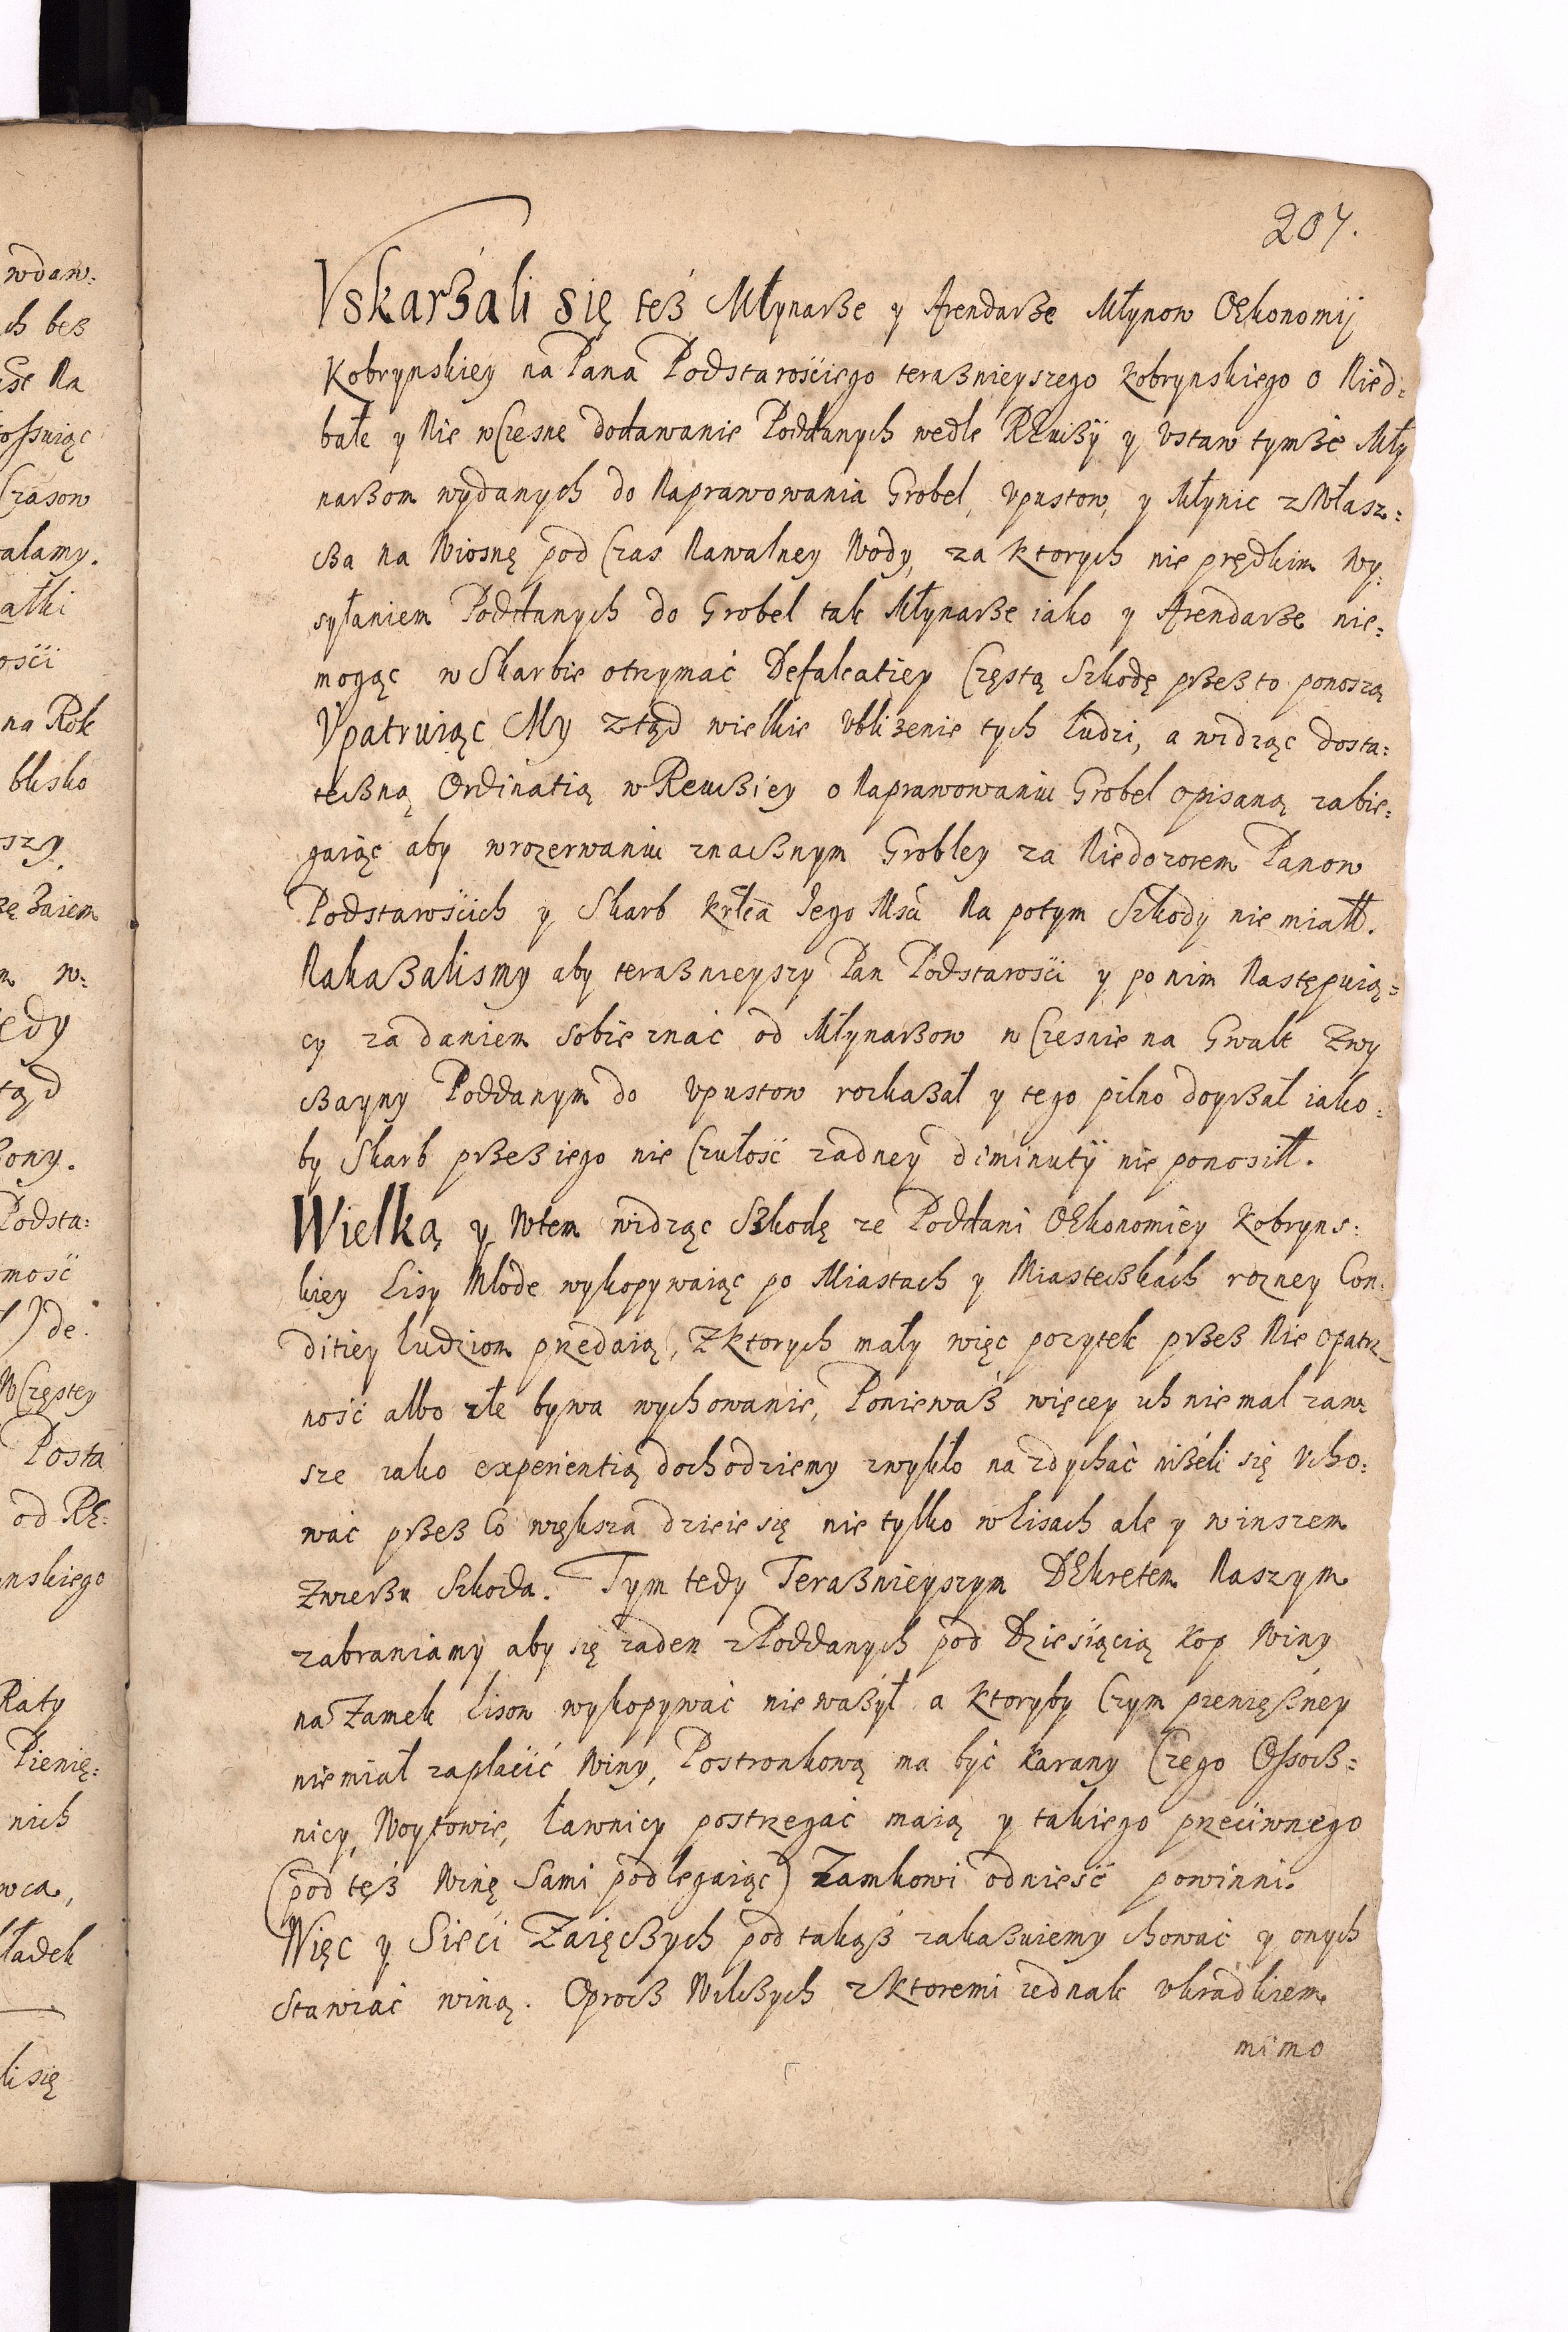 207.
Vskarżali się też Młynarze y Arendarze Młynow Oekonomij
Kobrynskiey na Pana Podstarościego teraznieyszego Kobrynskiego o Nied-
bałe y Nie wczesne dodawanie Poddanych wedle Rewizÿ y Vstaw tymże Mły
narzom wydanych do Naprawowania Grobel, Vpustow, y Młynic zwłasz-
cza na Wiosnę pod Czas Nawalney Wody, za ktorych nie prędkim Wy-
syłaniem Poddanych do Grobel tak Młynarze iako y Arendarze nie-
mogąc w Skarbie otrzymać Defalcatiey Częstą Szkodę przez to ponoszą
Vpatruiąc My ztąd wielkie Vbliżenie tych Ludzi, a widząc dosta-
teczną Ordinatią w Rewiziey o Naprawowaniu Grobel opisaną zabie-
gaiąc aby w rozerwaniu znacznym Grobley za Niedozorem Panow
Podstarościch y Skarb Krlea Jego Msci Na potym Szkody nie miałł.
Nakazalismy aby teraznieyszy Pan Podstarości y po nim Następuią-
cy za daniem sobie znać od Młynarzow w Czesnie na Gwałt Zwy
czayny Poddanym do Vpustow rozkazał y tego pilno doyrzał iako-
by Skarb przez iego nie Czułość zadney diminutÿ nie ponosiłł.
Wielką y Wtem widząc Szkodę ze Poddani Oekonomiey Kobryns-
kiey Lisy Młode wykopywaiąc po Miastach y Miasteczkach rozney Con-
ditiey Ludziom przedaią, z ktorych mały więc pozytek przez Nie opatrz-
ność albo złe bywa wychowanie, Ponieważ więcey ich niemal zaw-
sze iako experientią dochodziemy zwykło na zdychać niżeli się Vcho-
wać przez Co większa dzieie się nie tylko w Lisach ale y w inszem
Zwierzu Szkoda. Tym tedy Teraznieyszym Dekretem Naszym
zabraniamy aby się zaden z Poddanych pod Dziesiącią Kop Winy
na Zamek Lisow wykopywać nie ważył a Ktoryby Czym pienięzney
nie miał zapłacić Winy, Postronkową ma być Karany Czego Ossocz-
nicy, Woytowie, Ławnicy postrzegać maią y takiego przeciwnego
(pod też Winę Sami podlegaiąc) Zamkowi odnieść powinni.
Więc y Sieci Zaięczych pod takąż zakazuiemy chować y onych
Stawiać winą. Oprocz Wilczych z Ktoremi iednak vkradkiem
mimo